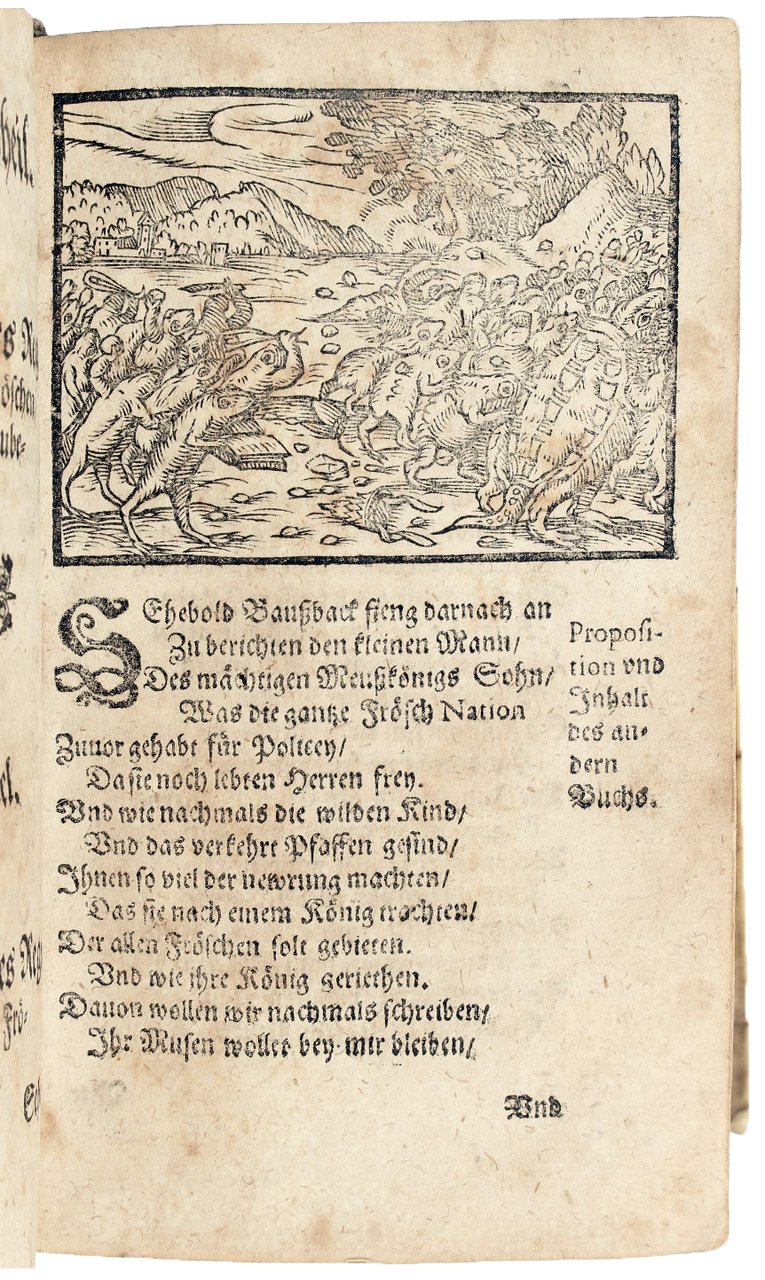 heil.
SEhebold Baußback fieng darnach an
Zu berichten den kleinen Mann/
Des mächtigen Meußkönigs Sohn/
Was die gantze Frösch Nation
Zuuor gehabt für Policey/
Da sie noch lebten Herren frey.
Vnd wie nachmals die wilden Kind/
Vnd das verkehrt Pfaffen gesind/
Ihnen so viel der newrung machten/
Das sie nach einem König trachten/
Der allen Fröschen solt gebieten.
Vnd wie ihre König geriethen.
Dauon wollen wir nachmals schreiben/
Ihr Musen wollet bey mir bleiben/
Proposi-
tion vnd
Inhalt
des an-
dern
Buchs.
Vnd